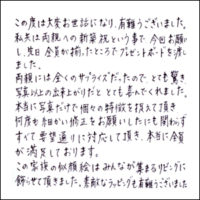 この度は大変お世話になり、有難うございました。
私共は両親への新築祝という事で、今回お願い
し、先日 全員が揃ったところでプレゼントボードを渡し
ました。
両親には全くのサプライズだったので とても驚き
写真以上の出来上がりだと とても喜んでくれました。
本当に写真だけで個々の特徴を捉えて頂き
何度も細かい修正をお願いしたにも関わらず
すべて要望通りに対応して頂き、本当に全員
が満足しております。
この家族の似顔絵はみんなが集まるリビングに
飾らせて頂きました。素敵なラッピングも有難うございました